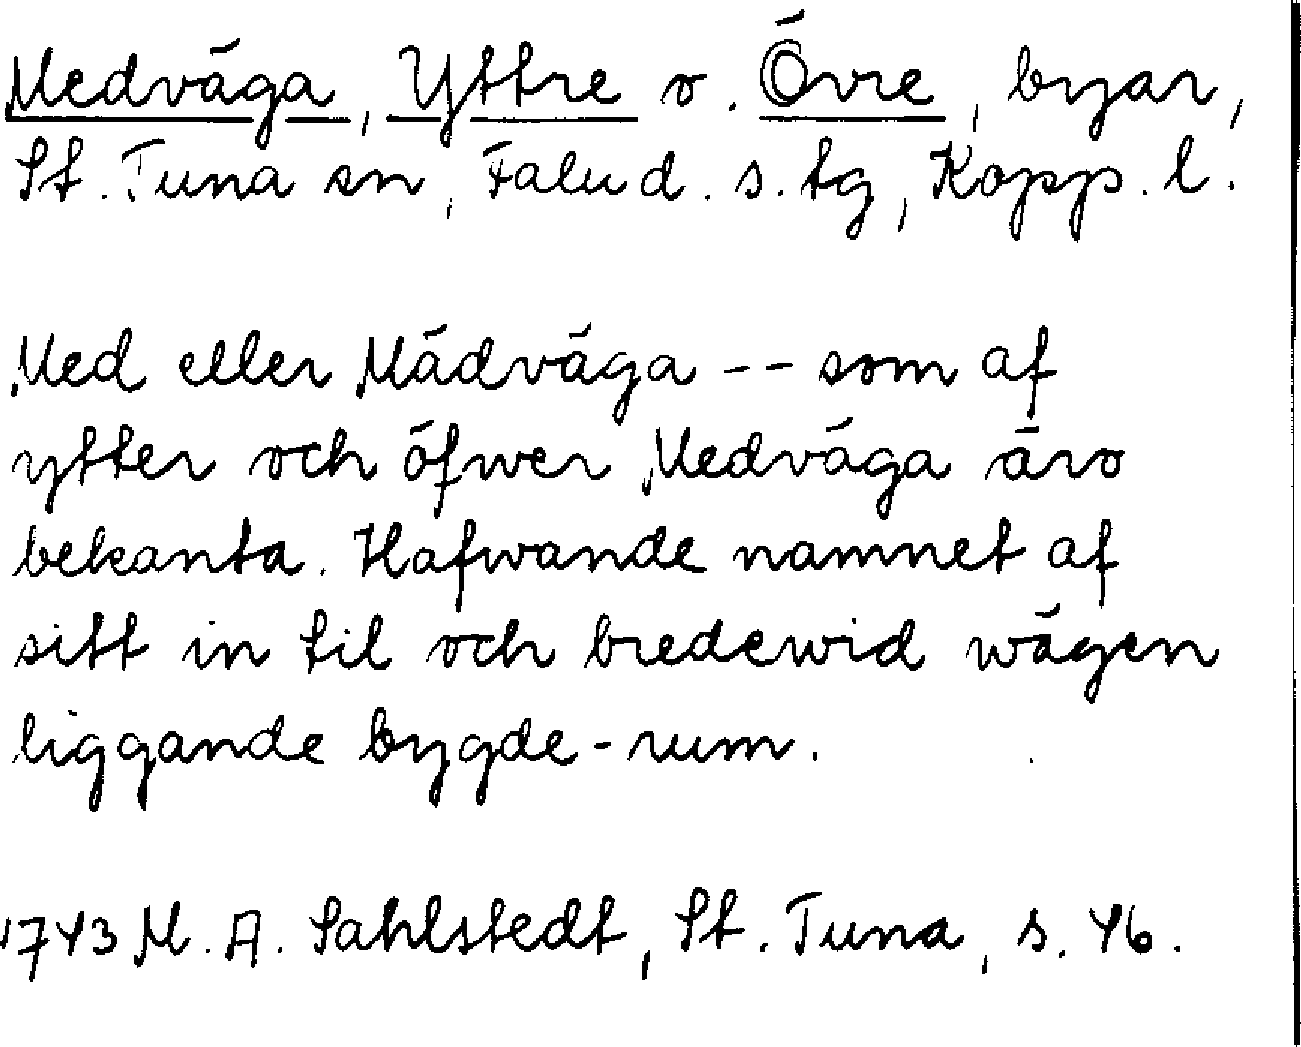 Medväga, Yttre o. Övre, byar,
St. Tuna sn, Falu d. s. tg, Kopp. l.
Med eller Mädväga -- som af
ytter och öfwer Medväga äro
bekanta. Hafwande namnet af
sitt in til och bredewid wägen
liggande bygde-rum.
1743 M. A. Sahlstedt, St. Tuna, s. 46.